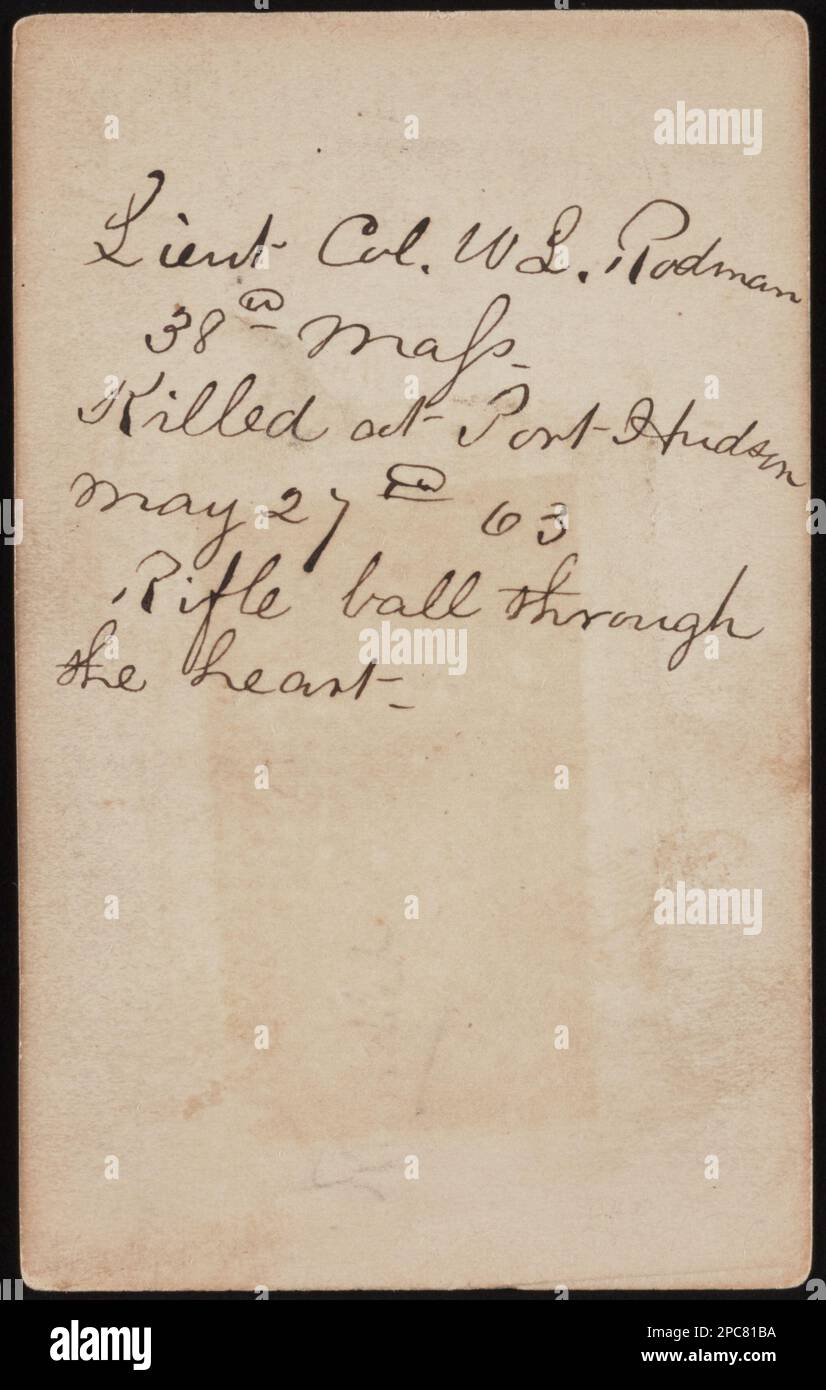 Lieut Col. W L. Rodman
38th Mass.
Killed at Port Hudson
May 27th 63
Rifle ball through
the heart.
alamy
Image ID: 2PC81BA
www.alamy.com